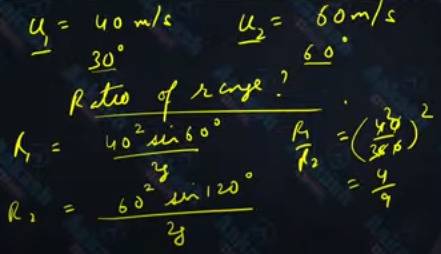 u₁ = 40 m/s u₂ = 60 m/s
30° 60°
Ratio of range?
R₁ = 40² sin 60° / 2g
R₁/R₂ = (40/60)²
= 4/9
R₂ = 60² sin 120° / 2g